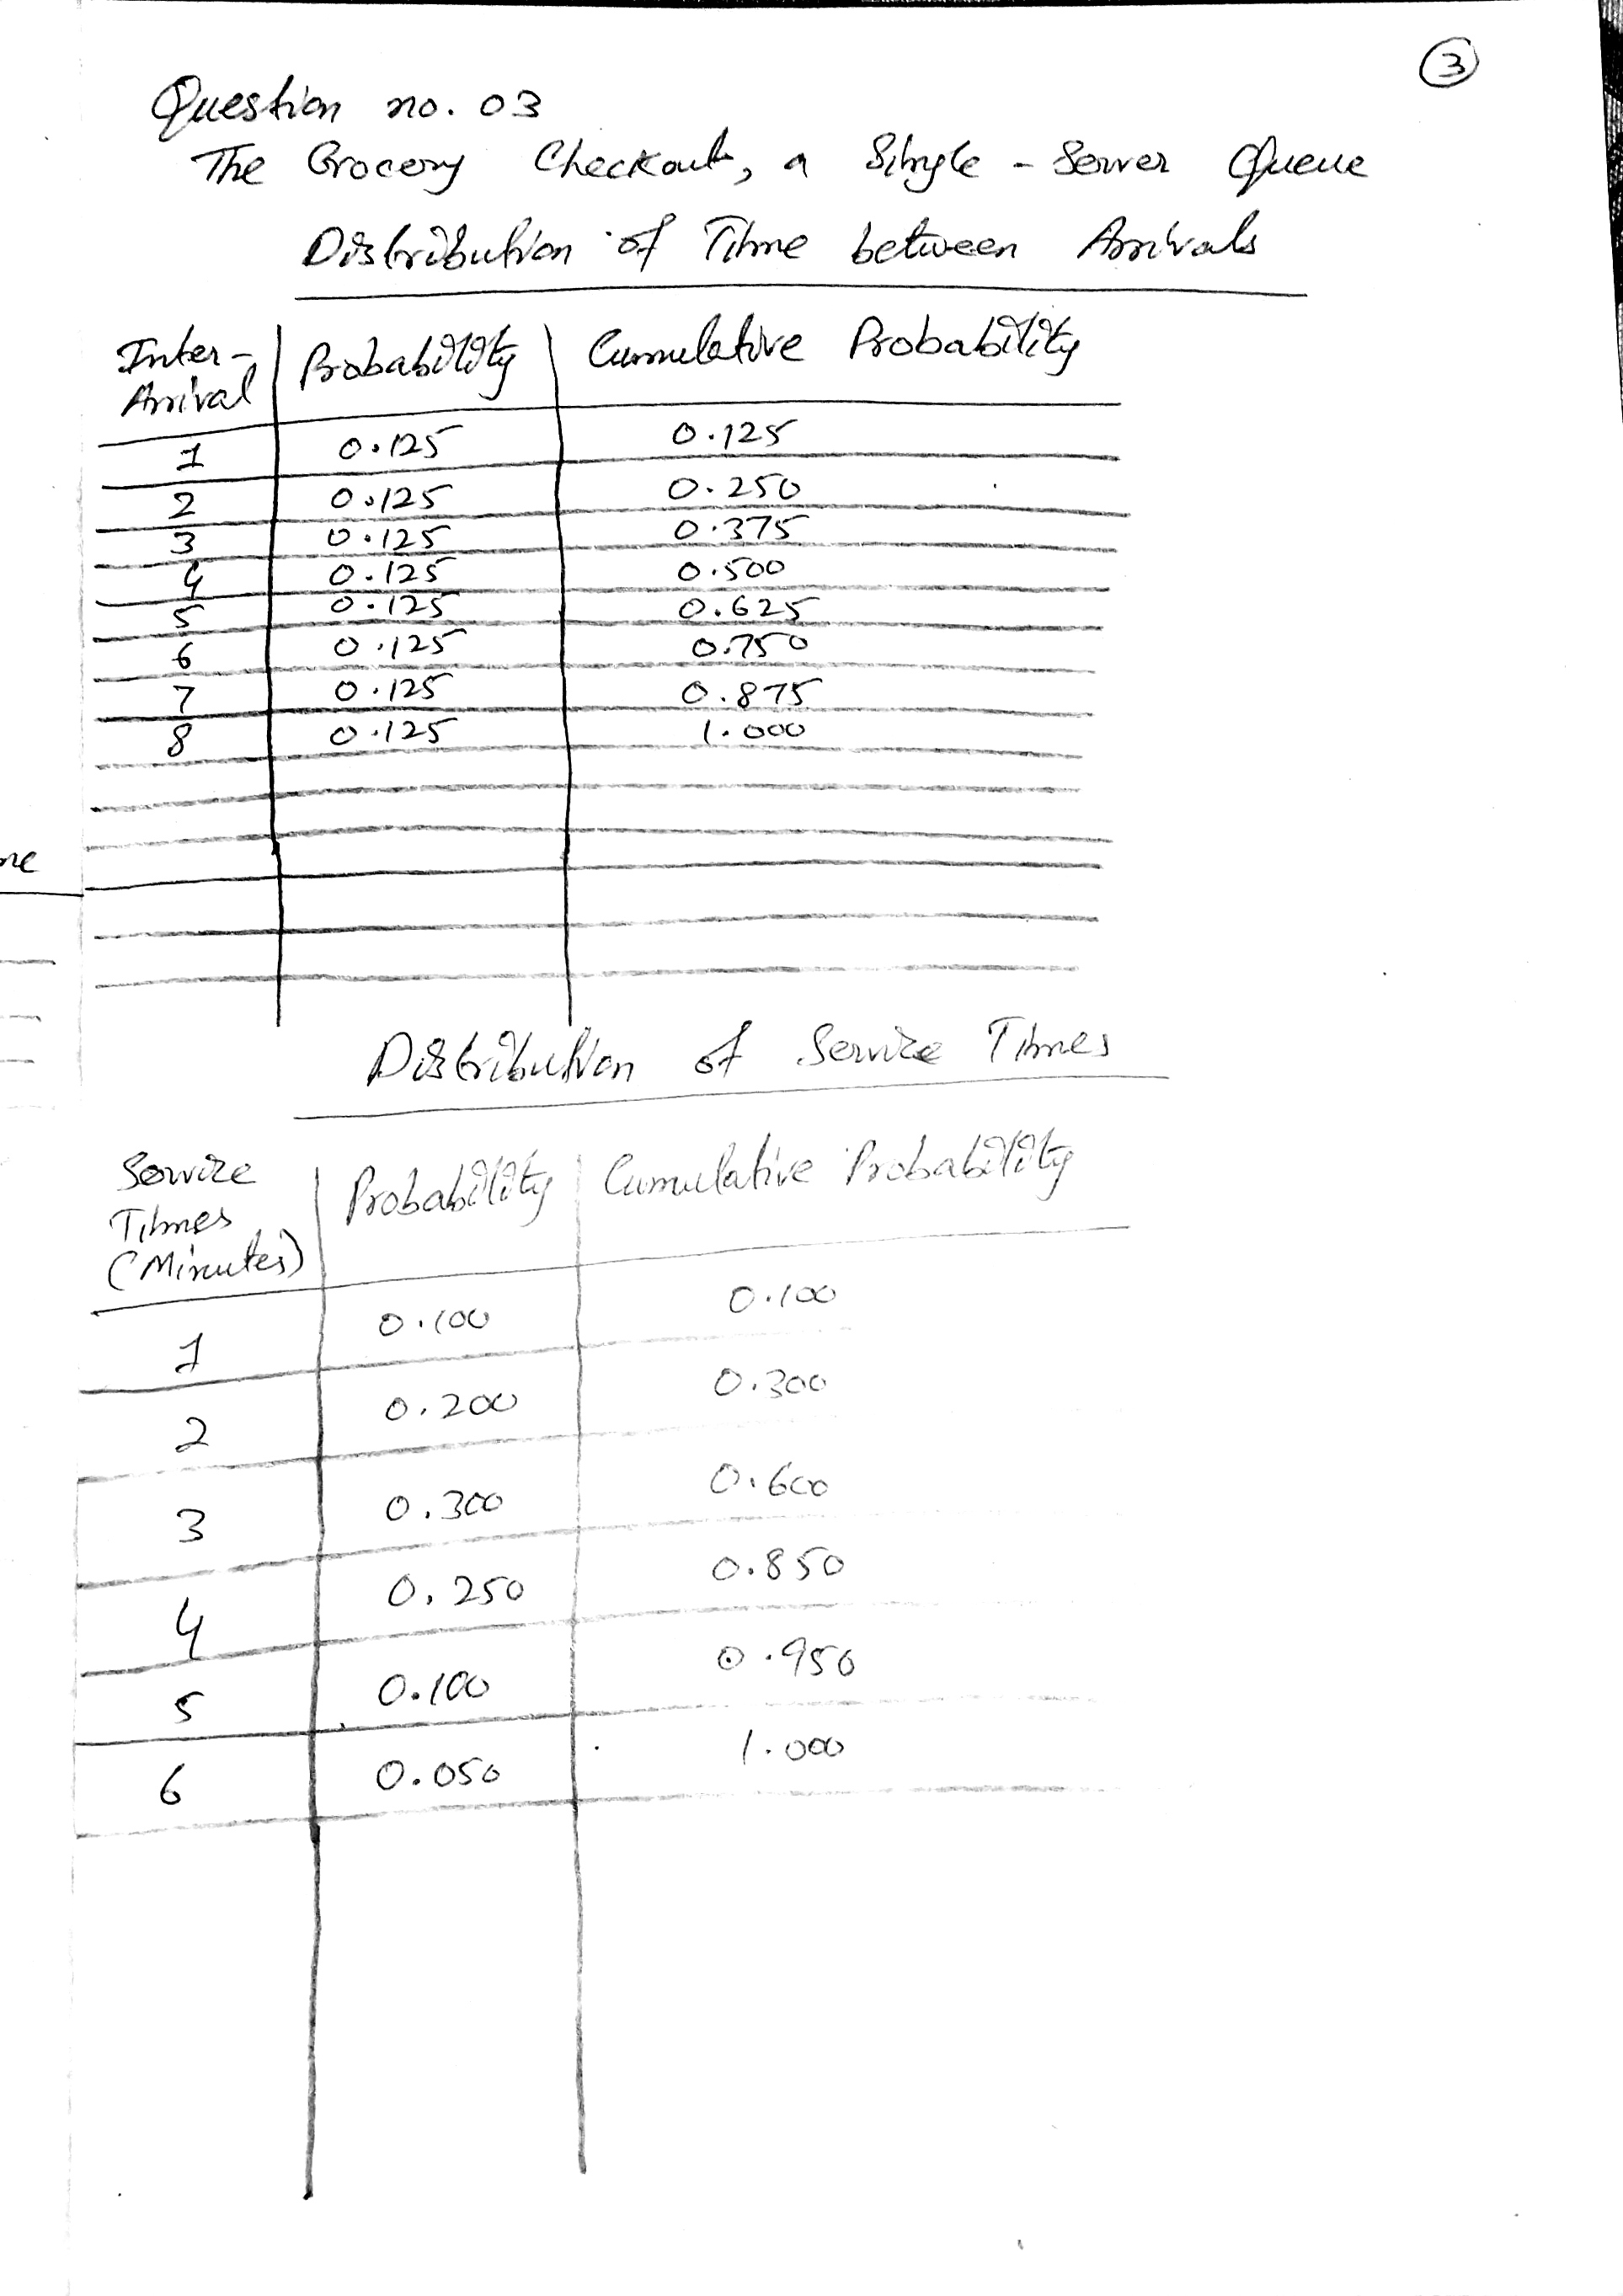 3
Question no. 03
The Grocery Checkout, a Single - Server Queue
Distribution of Time between Arrivals
Inter-Arrival Probability Cumulative Probability
1 0.125 0.125
2 0.125 0.250
3 0.125 0.375
4 0.125 0.500
5 0.125 0.625
6 0.125 0.750
7 0.125 0.875
8 0.125 1.000
Distribution of Service Times
Service Times (Minutes) Probability Cumulative Probability
1 0.100 0.100
2 0.200 0.300
3 0.300 0.600
4 0.250 0.850
5 0.100 0.950
6 0.050 1.000